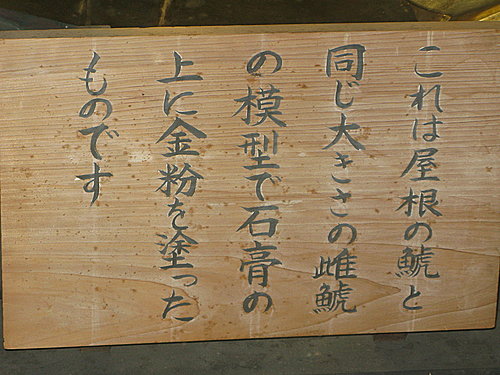 これは屋根の鯱と
同じ大きさの雌鯱
の模型で石膏の
上に金粉を塗った
ものです